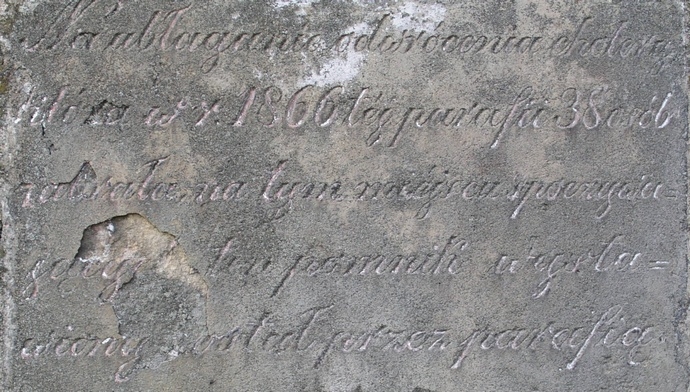 Na ubłaganie odwrócenia cholery,
która w r. 1866 téj parafii 38 osób
zabrała, na tym miéjscu spoczywa-
jących ten pomnik wysta-
wiony został przez parafią.